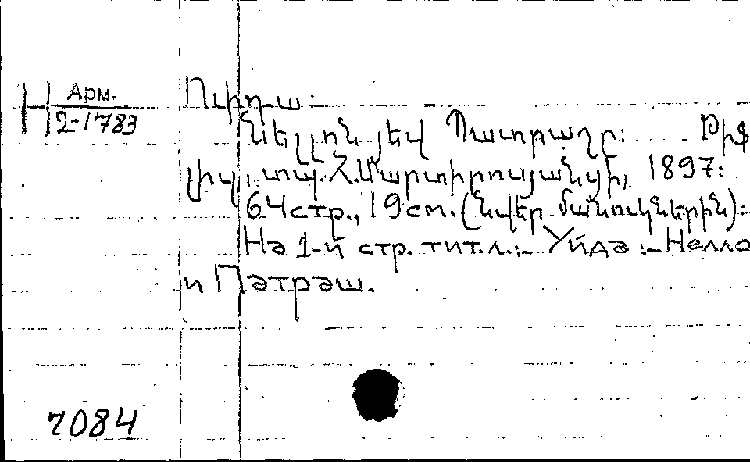 Н Арм. 2-1783
Ուիդա:
Նելլոն յեվ Պատրաշը: Թիֆ
լիզ, տպ. Հ. Մարտիրոսյանցի, 1897:
64 стр., 19 см. (Նվեր մանուկներին):
На 2-й стр. тит. л.:- Уйда:- Нелло
и Патраш.
7084